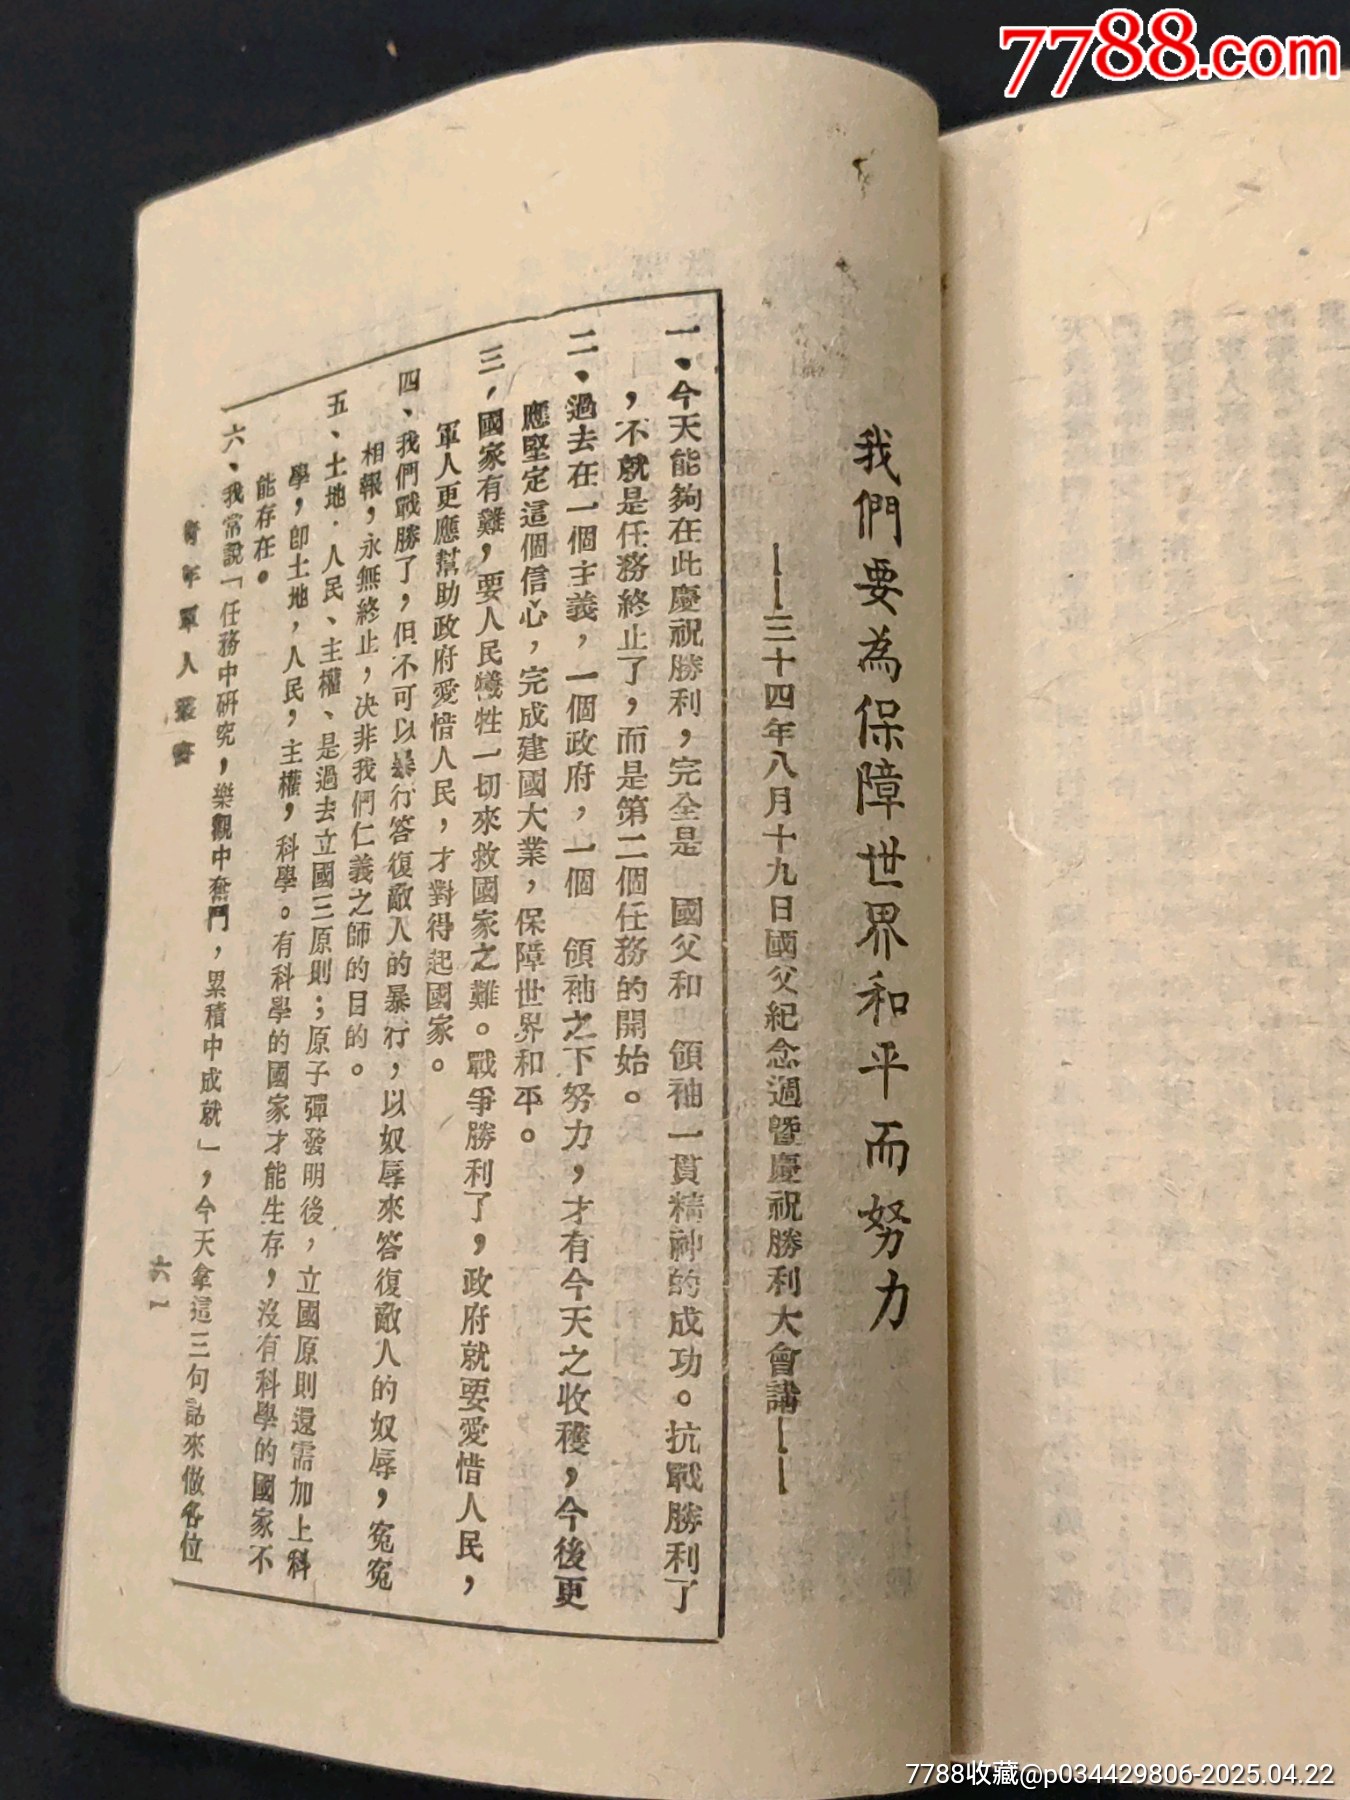 7788.com
我們要為保障世界和平而努力
——三十四年八月十九日國父紀念週暨慶祝勝利大會講——
一、今天能夠在此慶祝勝利，完全是　國父和　領袖一貫精神的成功。抗戰勝利了
，不就是任務終止了，而是第二個任務的開始。
二、過去在一個主義，一個政府，一個　領袖之下努力，才有今天之收穫，今後更
應堅定這個信心，完成建國大業，保障世界和平。
三，國家有難，要人民犧牲一切來救國家之難。戰爭勝利了，政府就要愛惜人民，
軍人更應幫助政府愛惜人民，才對得起國家。
四、我們戰勝了，但不可以暴行答復敵人的暴行，以奴辱來答復敵人的奴辱，冤冤
相報，永無終止，決非我們仁義之師的目的。
五、土地．人民、主權、是過去立國三原則；原子彈發明後，立國原則還需加上科
學，卽土地，人民，主權，科學。有科學的國家才能生存，沒有科學的國家不
能存在。
六、我常說「任務中研究，樂觀中奮鬥，累積中成就」，今天拿這三句話來做各位
青年軍人叢書
六一
7788收藏@p034429806-2025.04.22